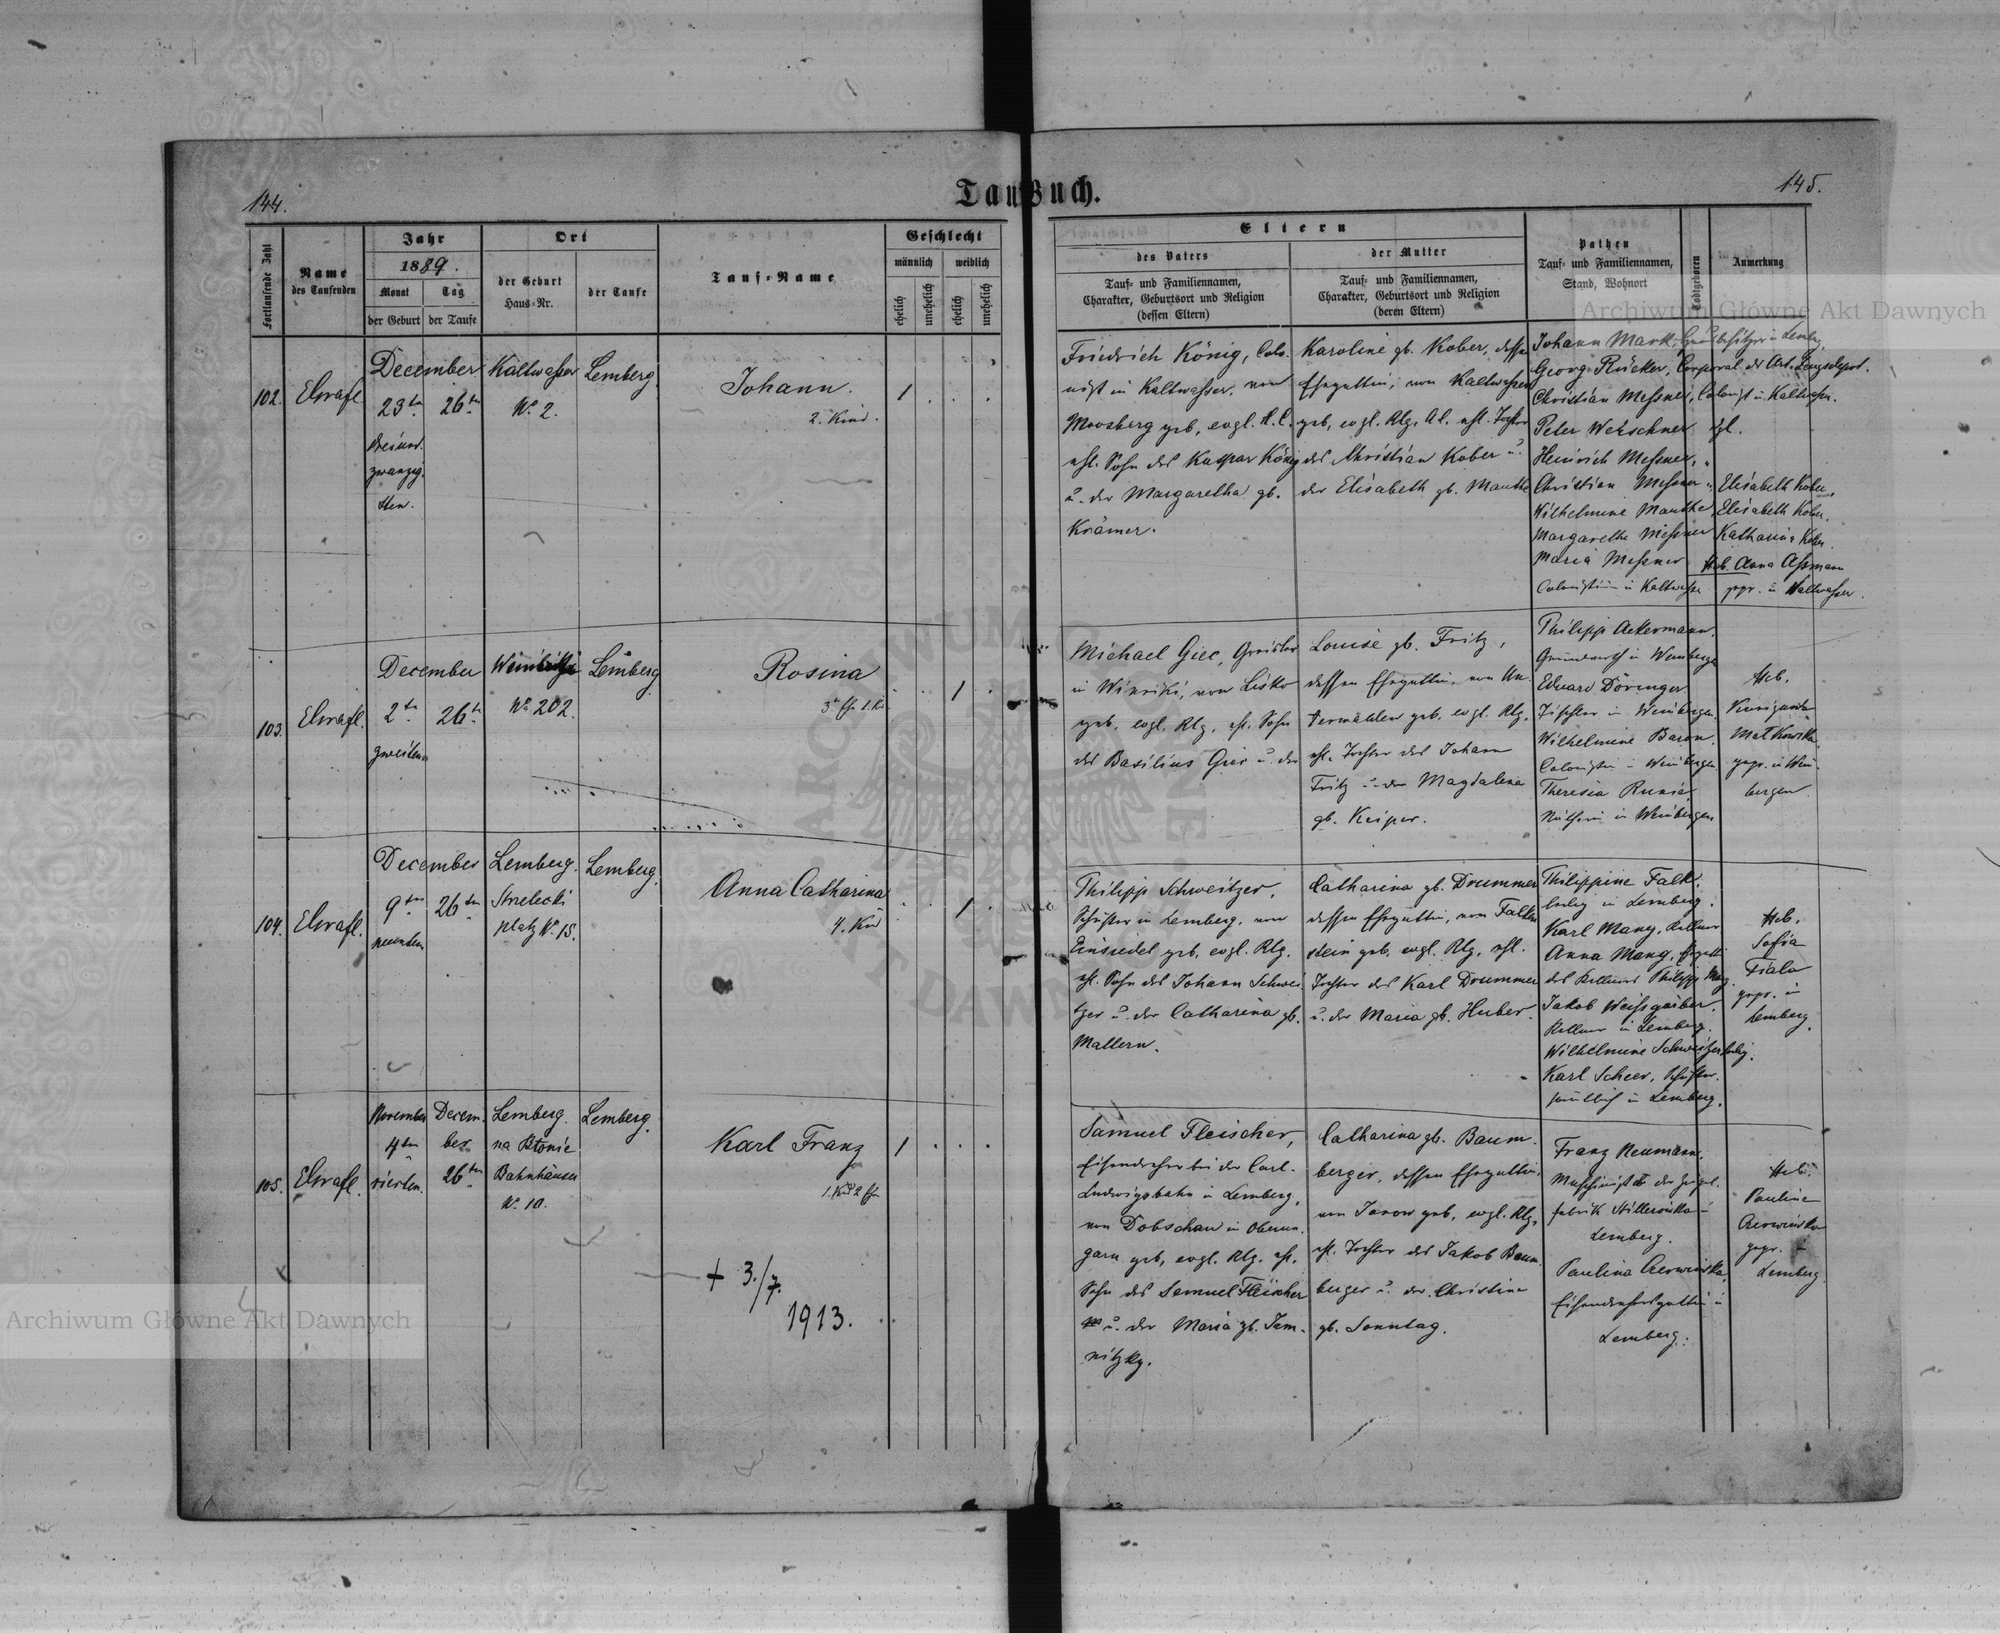 144.
TaufBuch.
145.
Fortlaufende Zahl
Name
des Taufenden
Jahr
1889.
Monat
Tag
der Geburt
der Taufe
Ort
der Geburt
Haus-Nr.
der Taufe
Tauf-Name
Geschlecht
männlich
weiblich
ehelich
unehelich
ehelich
unehelich
Eltern
des Vaters
Tauf- und Familiennamen,
Charakter, Geburtsort und Religion
(dessen Eltern)
der Mutter
Tauf- und Familiennamen,
Charakter, Geburtsort und Religion
(deren Eltern)
Pathen
Tauf- und Familiennamen,
Stand, Wohnort
Todtgeboren
Anmerkung
102.
December
23ten
26ten
Kaltwasser
Nr. 2.
Lemberg.
Johann.
2. Kind.
1
Friedrich König, Colo-
nist in Kaltwasser, von
Moosberg geb, evgl. A. C.
ehl. Sohn des Kaspar König
u. der Margaretha gb.
Krämer.
Karoline gb. Kober, dessen
Ehegattin, von Kaltwasser
geb, evgl. Rlg. ehl. Tochter
des Christian Kober u.
der Elisabeth gb. Manthe
Johann Mark,
Georg Rücker, Corporal
Christian Messner, Colonist in Kaltwasser.
Peter
Heinrich Messner,
Christian Messner
Wilhelmine Manthe
Margarethe Messner
Maria Messner
in Kaltwasser
Elisabeth Kober,
Elisabeth Kober,
Katharina Kober.
Heb. Anna Assmann
gepr. in Kaltwasser.
103.
December
2ten
26ten
zweiten
Nr. 202.
Lemberg
Rosina
1
Michael Giec,
in Winniki, von Lisko
geb, evgl. Rlg, ehl. Sohn
des Basilius Giec u. der
Louise gb. Fritz,
dessen Ehegattin, von Un-
terwalden geb. evgl. Rlg,
ehl. Tochter des Johann
Fritz u. der Magdalena
gb. Keiper.
Philipp Ackermann,
Grundwirth in Weinbergen
Eduard Döringer
Tischler in Weinbergen
Wilhelmine Baron,
in Weinbergen
Theresia
in Weinbergen
Heb.
Kunigunda
gepr. in Wein-
bergen.
104.
December
9ten
26ten
neunten
Lemberg.
Strelecki
platz Nr. 15.
Lemberg.
Anna Catharina
4. Kind
1
Philipp Schweitzer,
in Lemberg, von
Einsiedel geb, evgl. Rlg.
ehl. Sohn des Johann Schwei-
tzer u. der Catharina gb.
Mallern.
Catharina gb. Drummer
dessen Ehegattin, von Falken
stein geb, evgl. Rlg, ehl.
Tochter des Karl Drummer
u. der Maria gb. Huber.
Philippine Falk,
ledig in Lemberg.
Karl Mang, Kellner
Anna Mang,
des Kellners Philipp Mang
Jakob Weissgärber,
Kellner in Lemberg.
Wilhelmine Schweitzer ledig.
Karl Scheer,
in Lemberg.
Heb.
Sofia
Fiala
gepr. in
Lemberg.
105.
November
4ten
vierten.
Decem-
ber
26ten
Lemberg.
na Błonie
Bahnhäuser
Nr. 10.
Lemberg.
Karl Franz
1
+ 3./7.
1913.
Samuel Fleischer,
Eisendreher bei der Carl-
Ludwigsbahn in Lemberg,
von Dobschau in Oberun-
garn geb, evgl. Rlg. ehl.
Sohn des Samuel Fleischer
u. der Maria gb. Jam-
nitzky.
Catharina gb. Baum-
berger, dessen Ehegattin,
von Jarow geb, evgl. Rlg,
ehl. Tochter des Jakob Baum-
berger u. der Christine
gb. Sonntag.
Franz Neumann,
Lemberg.
Paulina
Lemberg.
Heb.
Pauline
gepr. in
Lemberg.
Archiwum Główne Akt Dawnych
Archiwum Główne Akt Dawnych
ARCHIWUM GŁÓWNE AKT DAWNYCH